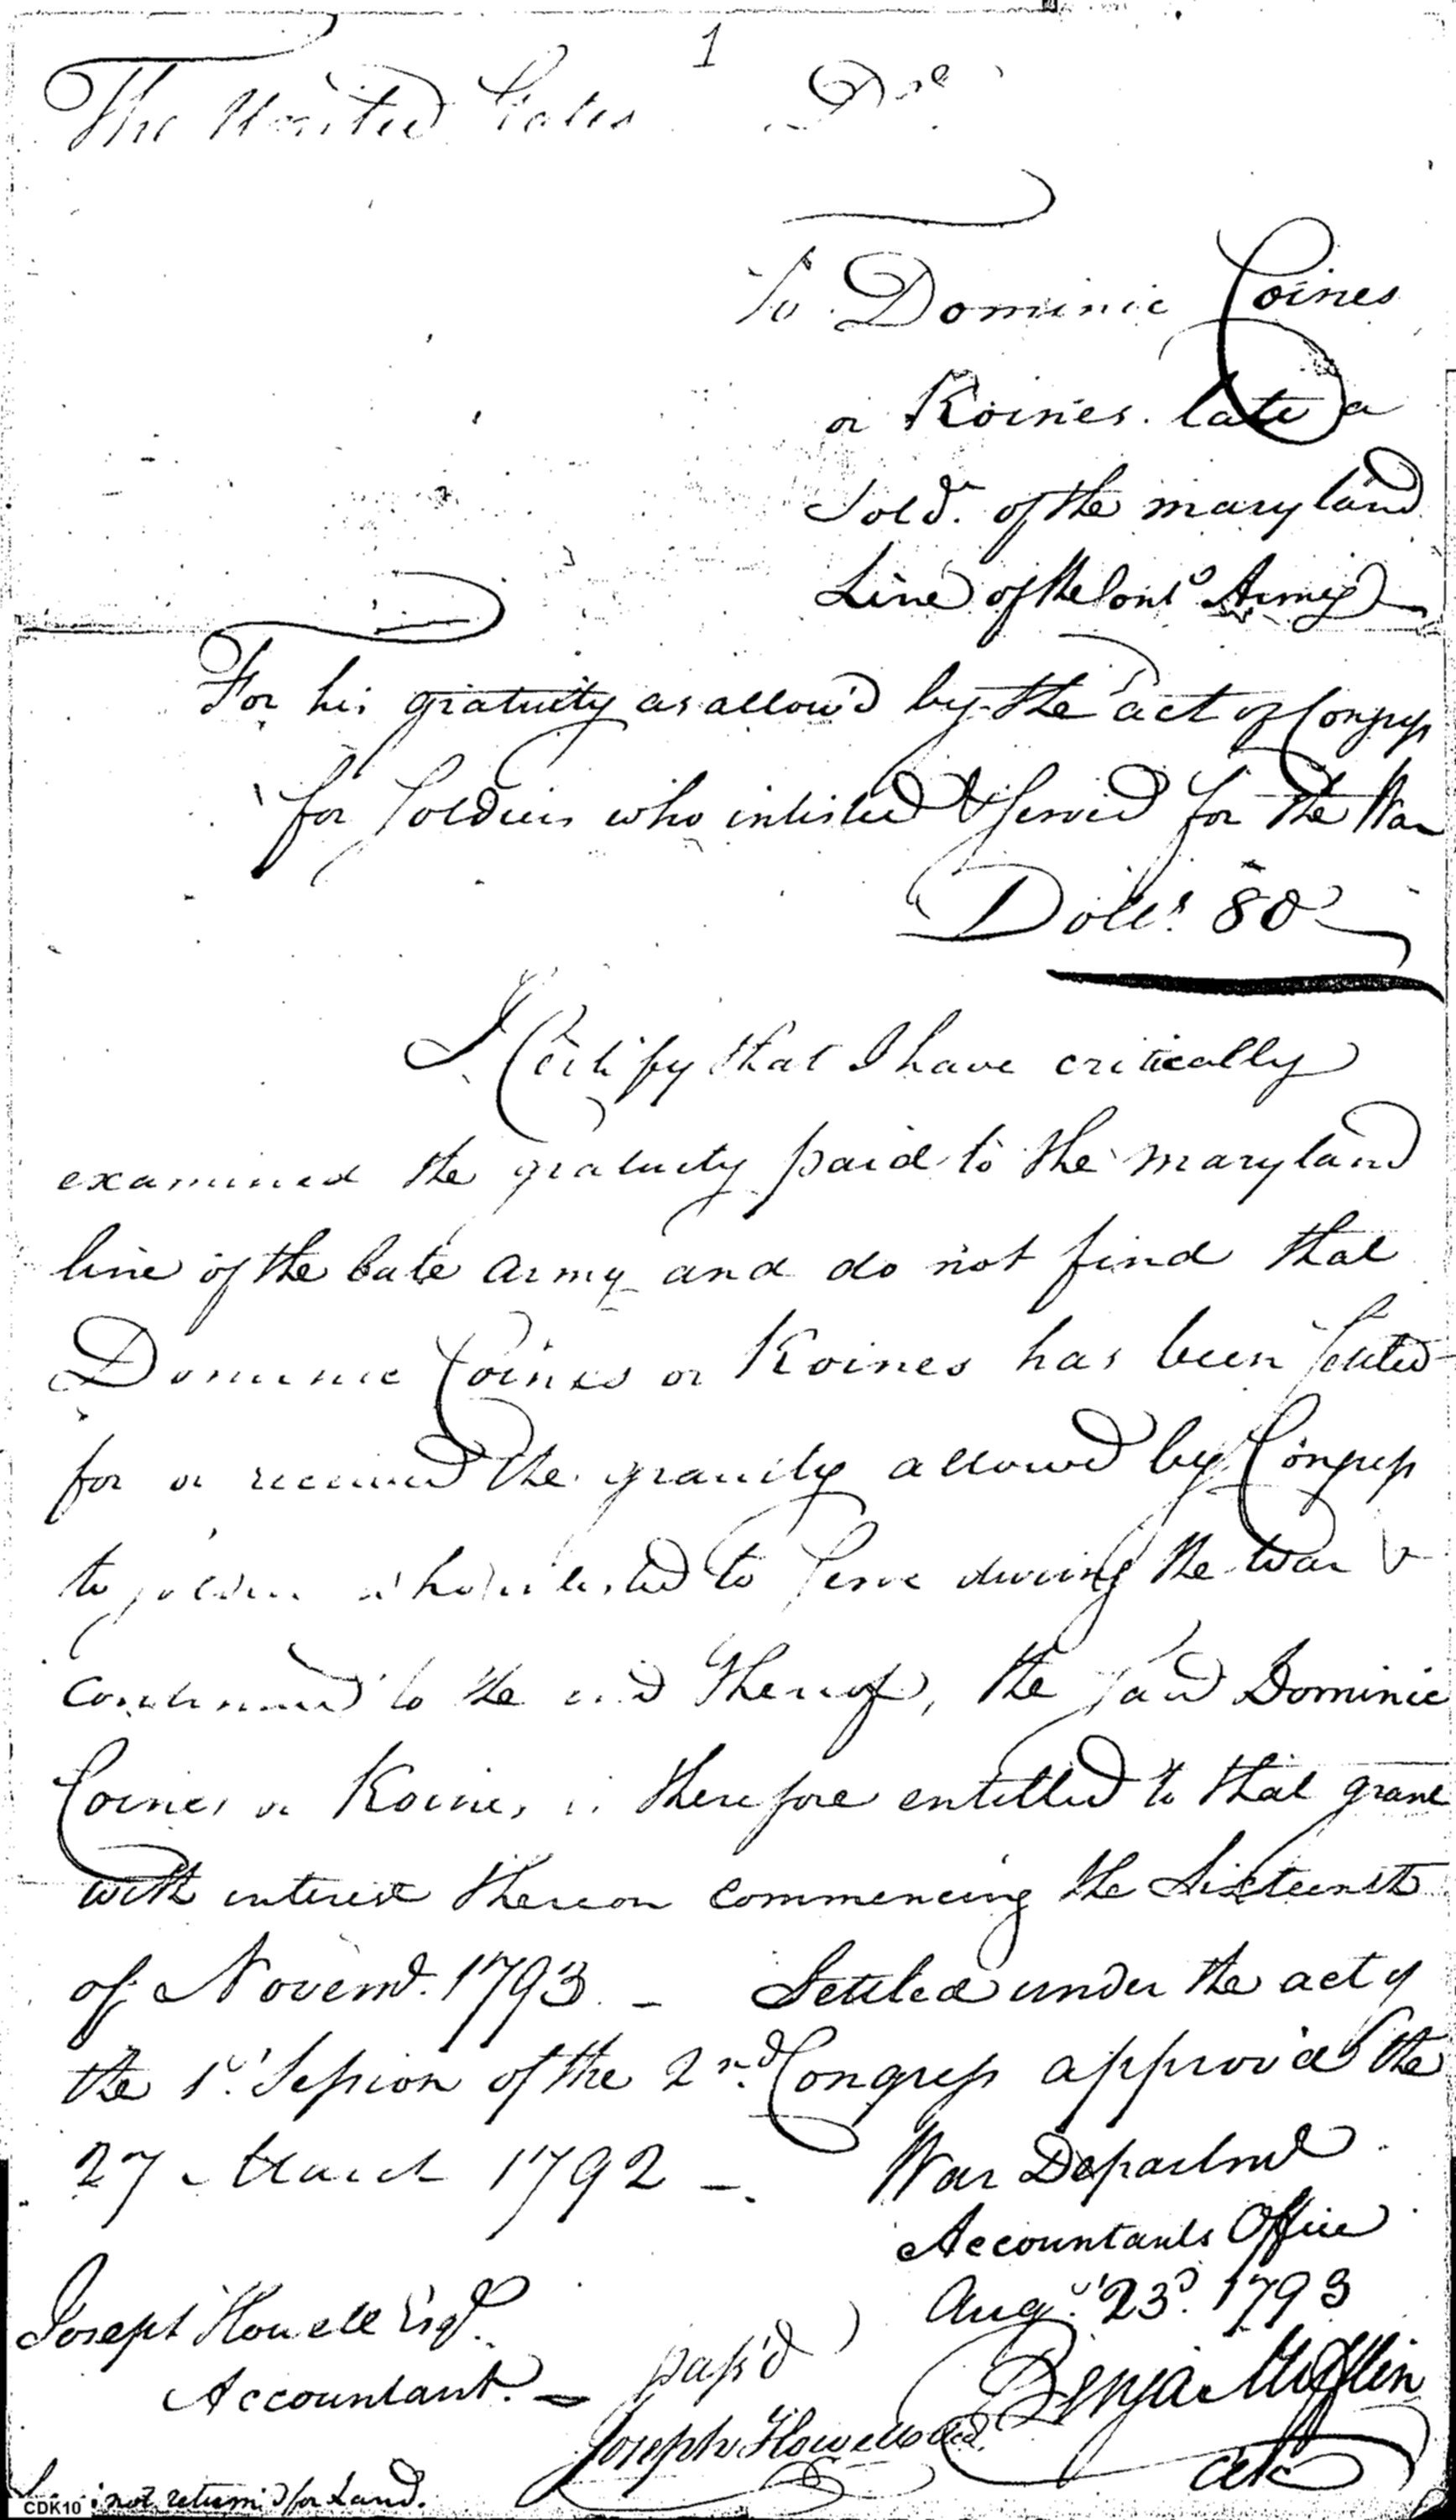 1
The United States Dr
To Dominic Coines
or Koines late a
Sold.r of the maryland
Line of the Cont.l Army
For his gratuity as allow'd by the act of Congress
for Soldiers who inlisted & served for the War
Doll.s 80
I Certify that I have critically
examined the gratuity paid to the maryland
line of the late army and do not find that
Dominic Coines or Koines has been settled
for or received the gratuity allowed by Congress
to soldiers who inlisted to serve during the war &
continued to the end thereof, the said Dominic
Coines or Koines is therefore entitled to that grant
with interest thereon commencing the Sixteenth
of Novemr. 1793 – Settled under the act of
the 1st Session of the 2nd Congress approv'd the
27 March 1792 –. War Department
Accountants Office
Augt. 23d. 1793
Joseph Howell Esqr.
Accountant. – pass'd Benja Mifflin
Joseph Howell Clk
not return'd for Land.
CDK10